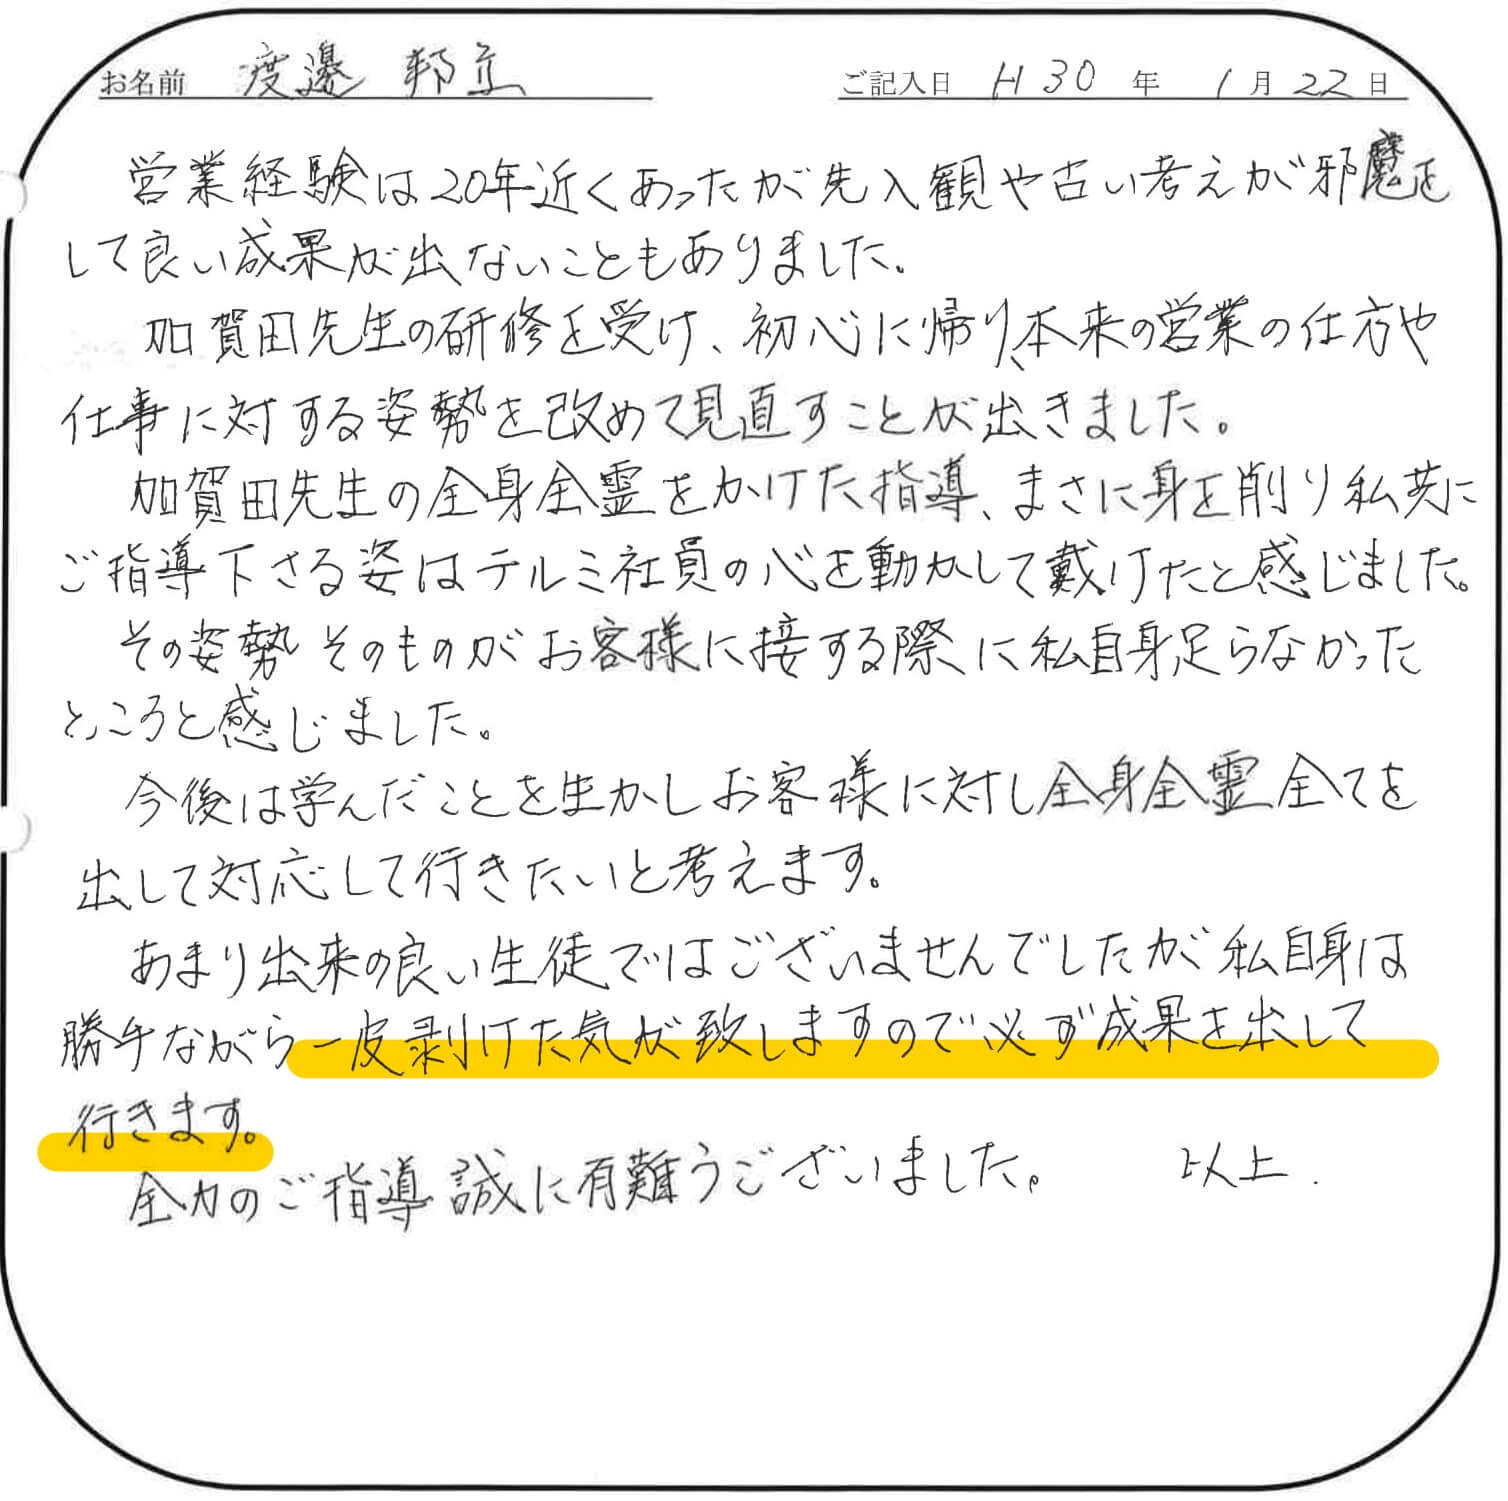 お名前 渡邊 邦立 ご記入日 H30年 1月22日
営業経験は20年近くあったが先入観や古い考えが邪魔を
して良い成果が出ないこともありました。
加賀田先生の研修を受け、初心に帰り、本来の営業の仕方や
仕事に対する姿勢を改めて見直すことが出きました。
加賀田先生の全身全霊をかけた指導、まさに身を削り私共に
ご指導下さる姿はテルミ社員の心を動かして戴けたと感じました。
その姿勢そのものがお客様に接する際に私自身足らなかった
ところと感じました。
今後は学んだことを生かしお客様に対し全身全霊全てを
出して対応して行きたいと考えます。
あまり出来の良い生徒ではございませんでしたが私自身は
勝手ながら一皮剥けた気が致しますので必ず成果を出して
行きます。
全力のご指導誠に有難うございました。 以上.